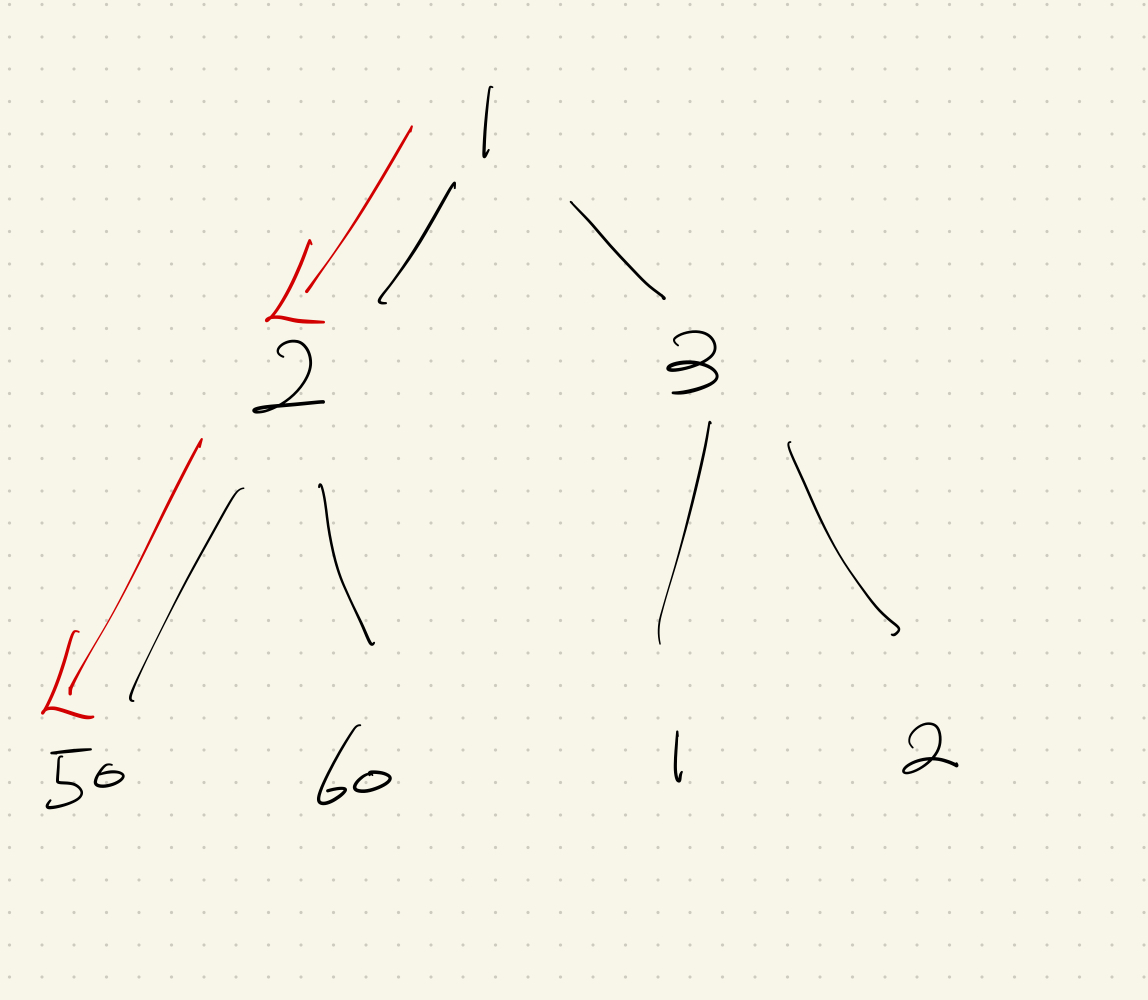 1
2 3
50 60 1 2